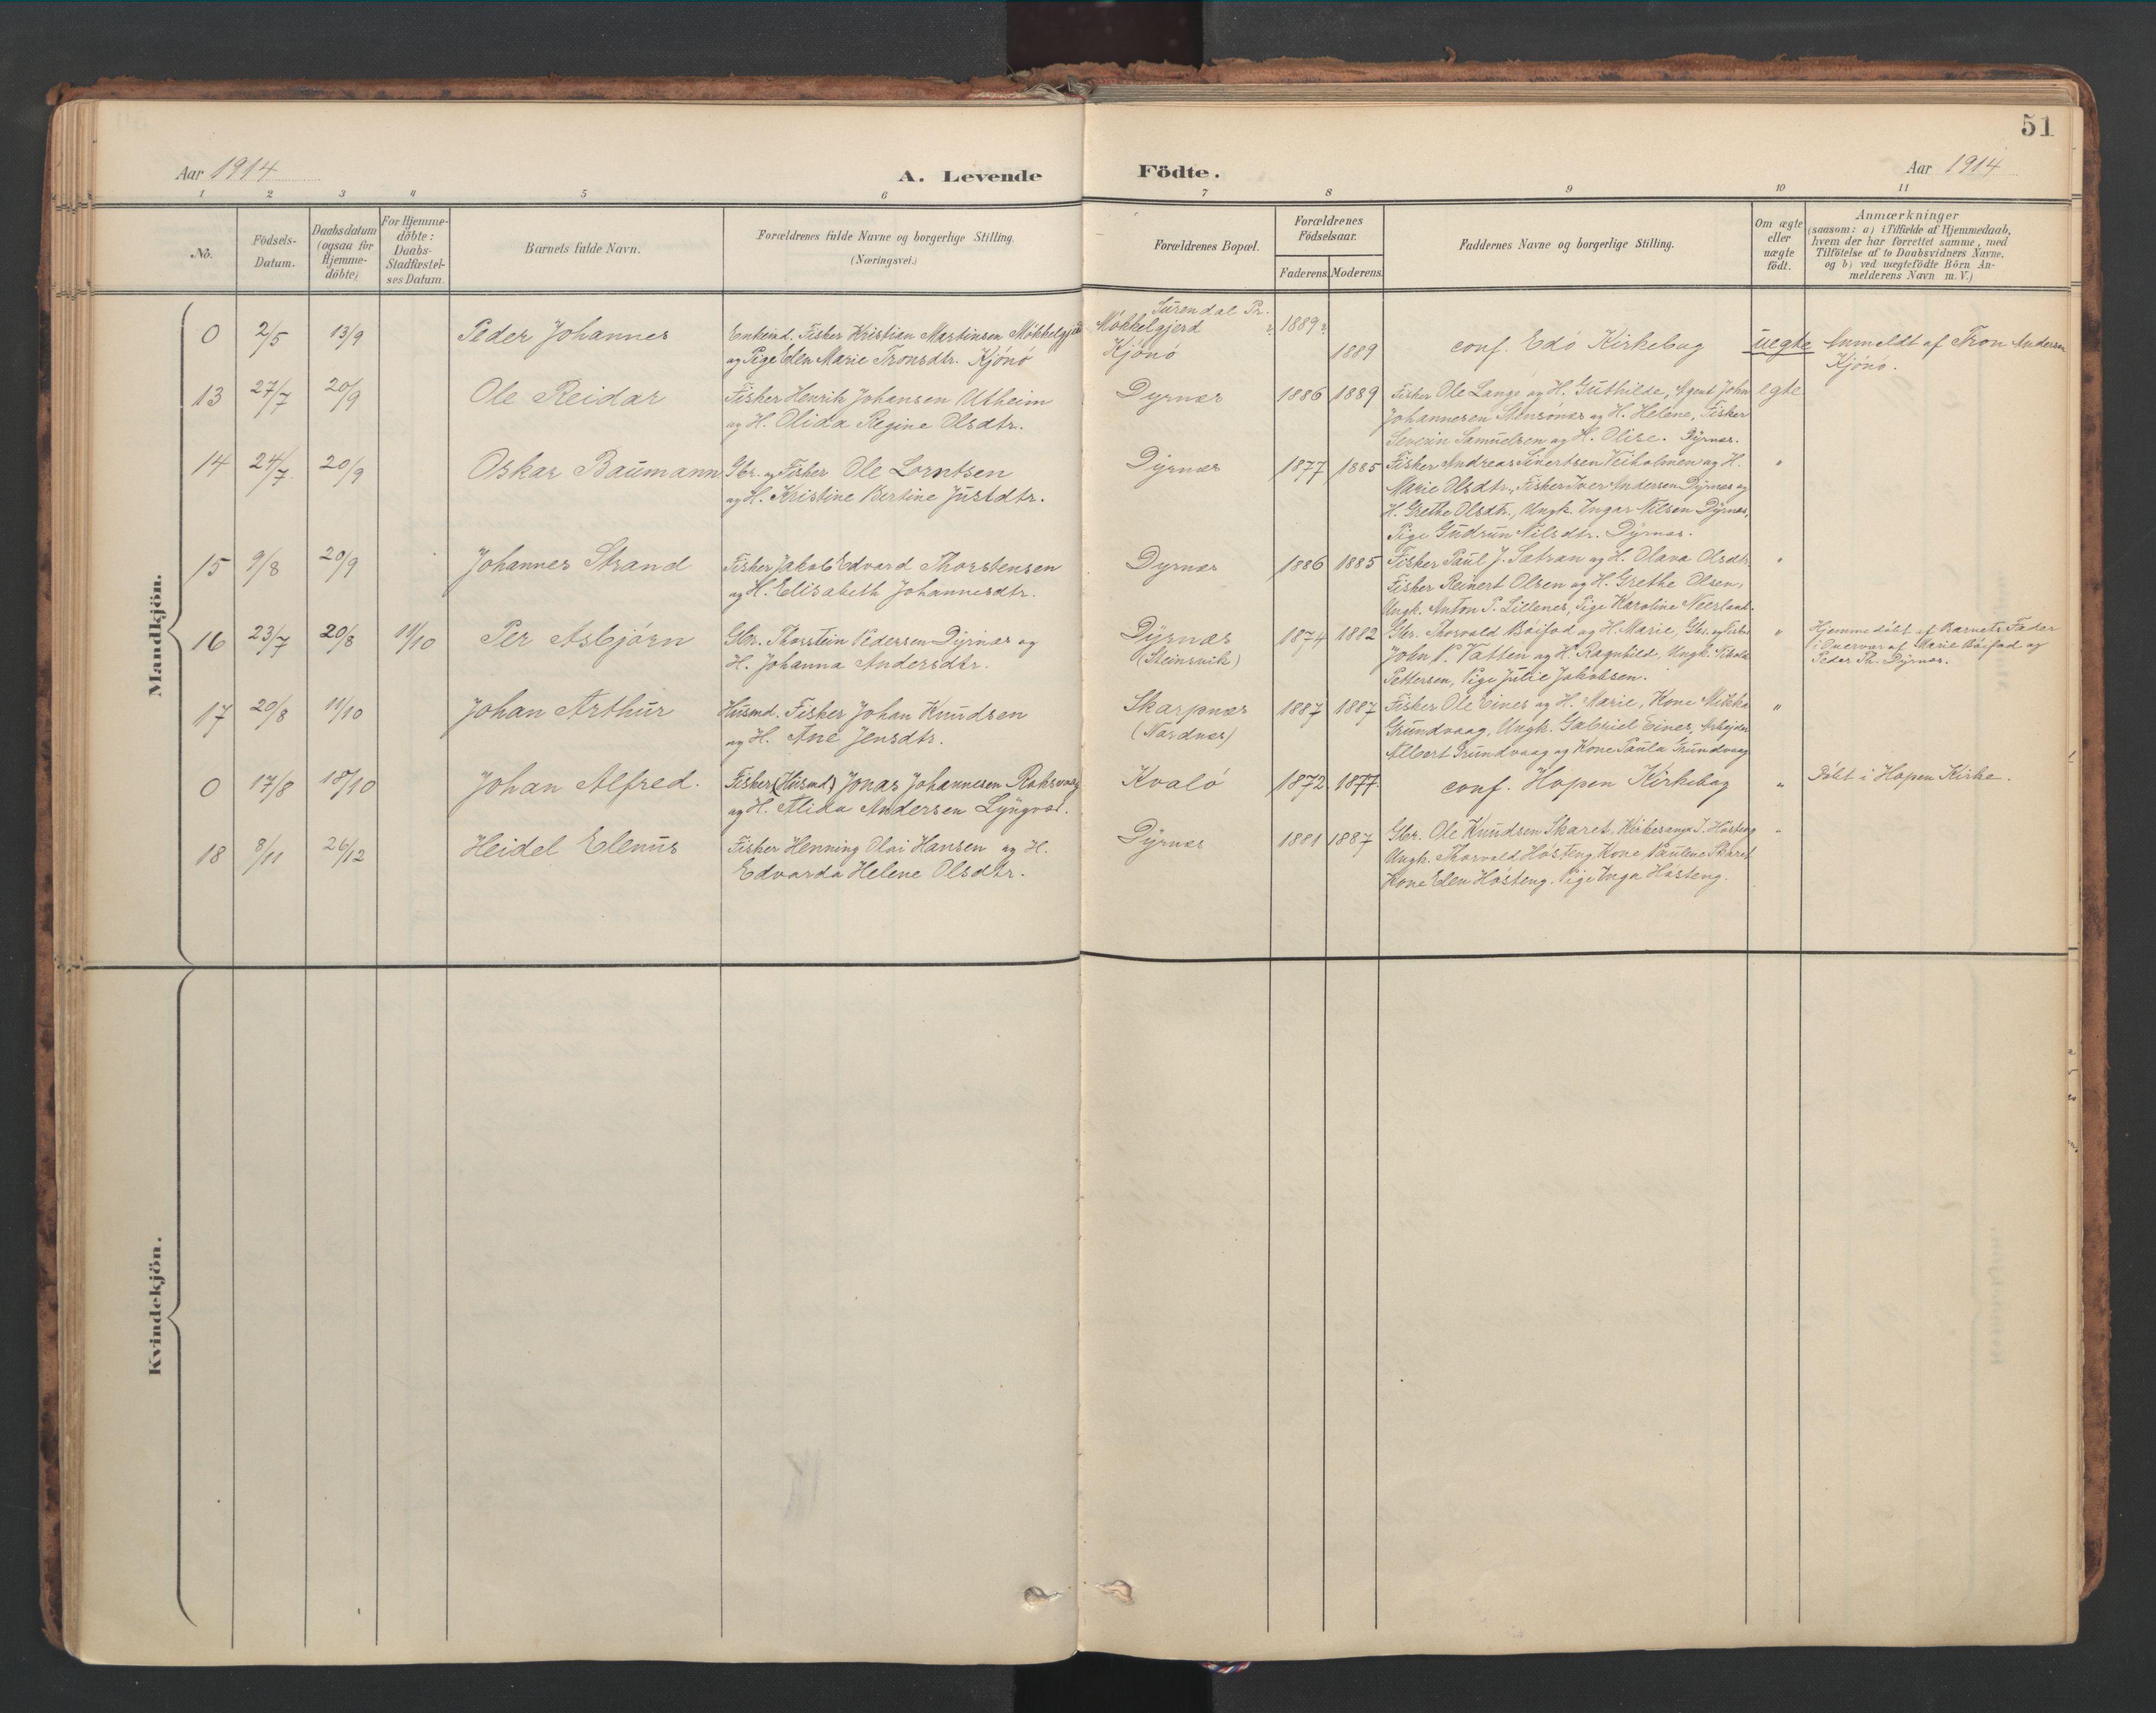 51
Aar 1914
A. Levende
Födte.
Aar 1914
1 2 3 4 5 6 7 8 9 10 11
No.
Födsels-
Datum.
Daabsdatum
(ogsaa for
Hjemme-
döbte)
For Hjemme-
döbte:
Daabs-
Stadfæstel-
ses Datum.
Barnets fulde Navn.
Forældrenes fulde Navne og borgerlige Stilling.
(Næringsvei.)
Forældrenes Bopæl.
Forældrenes
Födselsaar.
Faderens. Moderens.
Faddernes Navne og borgerlige Stilling.
Om ægte
eller
uægte
födt.
Anmærkninger
(saasom: a) i Tilfælde af Hjemmedaab,
hvem der har forrettet samme, med
Tilföielse af to Daabsvidners Navne.
og b) ved uægtefödte Börn An-
melderens Navn m. V.)
Mandkjön.
0 2/5 13/9 Peder Johannes
Enkemd. Fisker Kristian Martinsen
og Pige Elen Marie Tronsdtr. Kjönö
Surendal Pr.
Mökkelgjerd
Kjönö
1889 1889
conf. Edö Kirkebog
uegte
Anmeldt af Tron Andersen
Kjönö.
13 27/7 20/9 Ole Reidar
Fisker Henrik Johansen Utheim
og H. Olida Regine Olsdtr.
Dyrnæs 1886 1889
Fisker Ole Lange og H. Guthilde, Agent John
Johannesen Stensönæs og H. Helene, Fisker
Severin Samuelsen og H. Olise. Dyrnæs.
egte
14 24/7 20/9 Oskar Baumann
Gbr. og Fisker Ole Lorntsen
og H. Kristine Bertine Justdtr.
Dyrnæs 1877 1885
Fisker Andreas Sivertsen Veiholmen og H.
Marie Olsdtr., Fisker Iver Andersen Dyrnæs og
H. Grethe Olsdtr., Ungk. Ingar Nilsen Dyrnæs,
Pige Gudrun Nilsdtr. Dyrnæs.
"
15 9/8 20/9 Johannes Strand
Fisker Jakob Edvard Thorstensen
og H. Elisabeth Johannesdtr.
Dyrnæs 1886 1885
Fisker Paul J. Sætran og H. Olava Olsdtr.
Fisker Reinert Olsen og H. Grethe Olsen,
Ungk. Anton P. Lillenes, Pige Karoline
"
16 23/7 20/8 11/10 Per Asbjörn
Gbr. Thorstein Pedersen Dyrnæs og
H. Johanna Andersdtr.
Dyrnæs
(Steinsvik)
1874 1882
Gbr. Thorvald Böifod og H. Marie, Gbr. og Fisker
John P. Vatten og H. Ragnhild, Ungk.
Pettersen, Pige Julie Jakobsen.
"
Hjemmedöbt af Barnets Fader
i Overvær af Marie Böifod og
Peder Th. Dyrnæs.
17 20/8 11/10 Johan Arthur
Husmd. Fisker Johan Knudsen
og H. Ane Jensdtr.
Skarpnæs
(Nordnæs)
1887 1887
Fisker Ole Eines og H. Marie, Kone Mikka
Grundvaag, Ungk. Gabriel Eines, Arbejder
Albert Grundvaag og Kone Paula Grundvaag
"
0 17/8 18/10 Johan Alfred.
Fisker (Husmd) Jonas Johannesen Roksvaag
og H. Alida Andersen Lyngvær.
Kvalö 1872 1877
conf. Hopen Kirkebog
"
Döbt i Hopen Kirke.
18 8/11 26/12 Heidel Elenus
Fisker Henning Olai Hansen og H.
Edvarda Helene Olsdtr.
Dyrnæs 1881 1887
Gbr. Ole Knudsen Skaret, Kirkesanger I. Hösteng
Ungk. Thorvald Hösteng, Kone Pauline Skaret
Kone Elen Hösteng. Pige Inga Hösteng.
"
Kvindekjön.